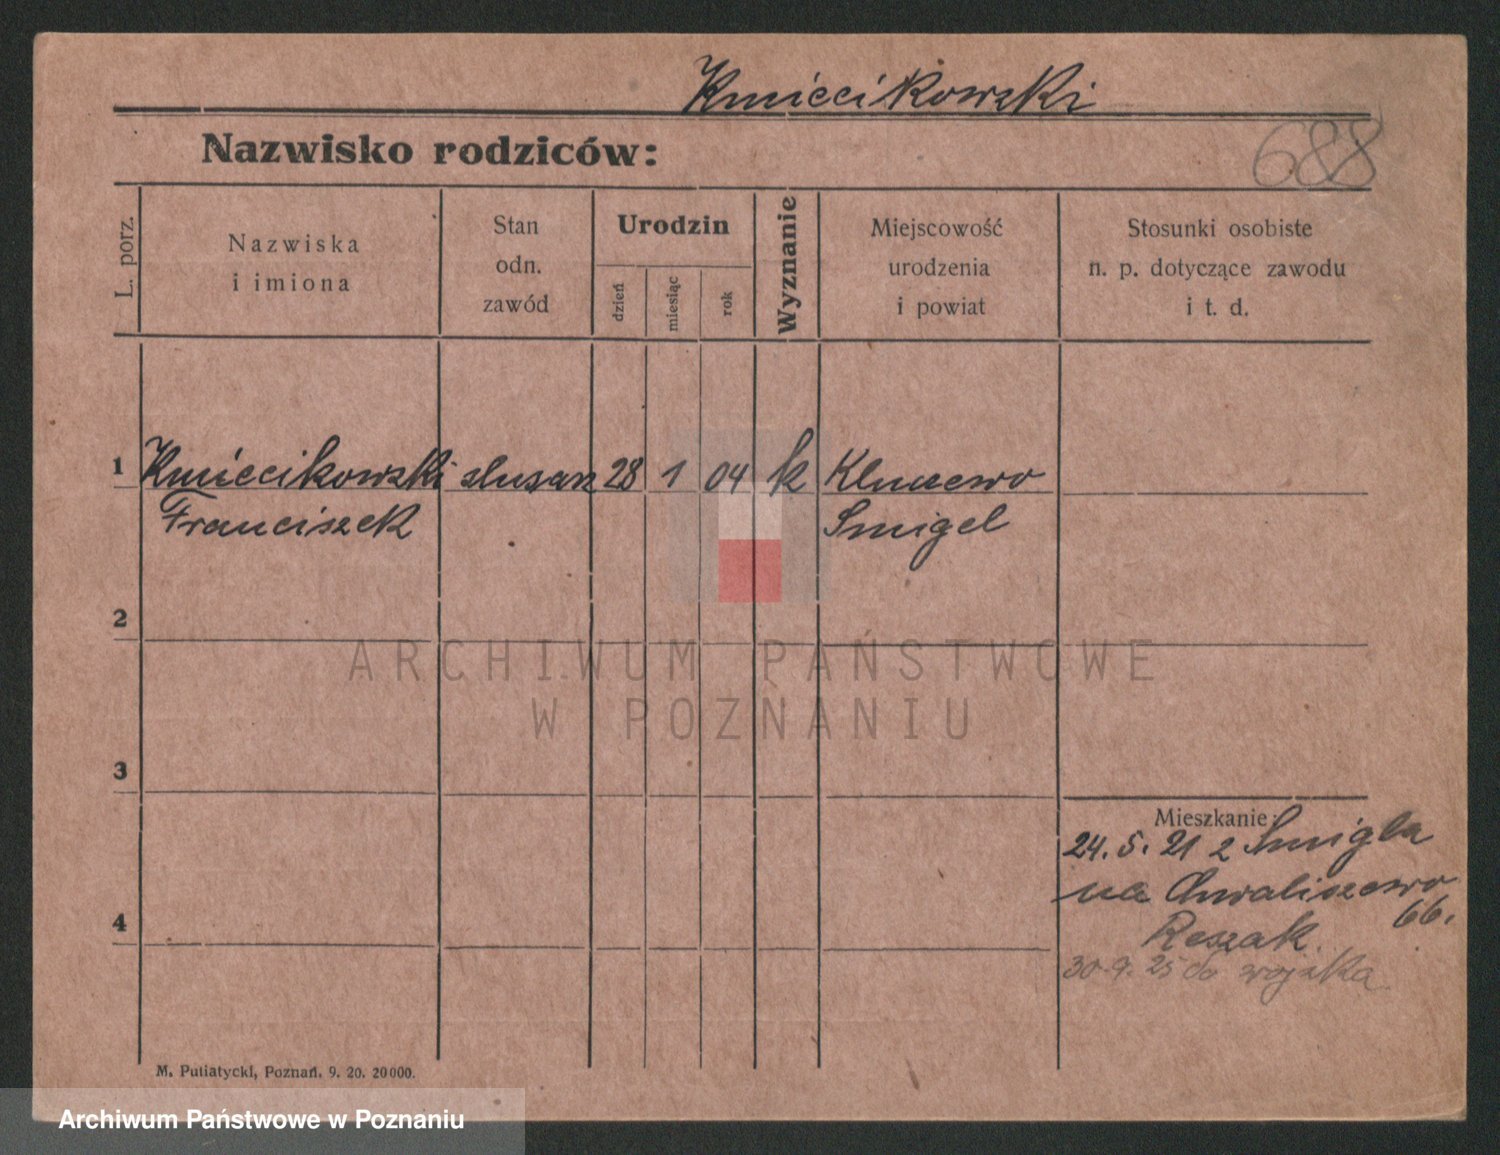 Kmiecikowski
688
Nazwisko rodziców:
L. porz.
Nazwiska
i imiona
Stan
odn.
zawód
Urodzin
dzień
miesiąc
rok
Wyznanie
Miejscowość
urodzenia
i powiat
Stosunki osobiste
n. p. dotyczące zawodu
i t. d.
1 Kmiecikowski slusarz 28 1 04 k Kluczewo
Franciszek Smigel
2
3
4
Mieszkanie:
24. 5. 21 z Smigla
na Chwaliszewo
66.
Reszak.
30.9.25 do wojska
M. Putiatycki, Poznań. 9. 20. 20000.
ARCHIWUM PAŃSTWOWE
W POZNANIU
Archiwum Państwowe w Poznaniu